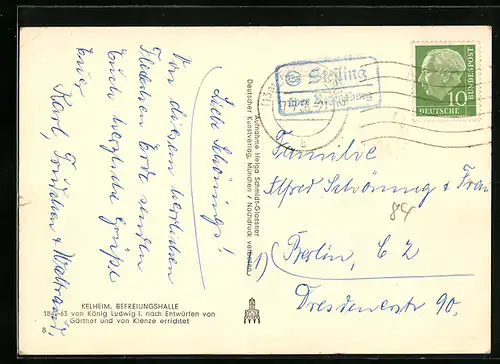 Liebe Schönings!
Von diesem herrlichen
Fleckchen Erde senden
Euch herzliche Grüße
Eure
Karl, Trudchen & Waltraud.
KELHEIM. BEFREIUNGSHALLE
1842-63 von König Ludwig I. nach Entwürfen von
Gärtner und von Klenze errichtet
8
Aufnahme Helga Schmidt-Glassner
Deutscher Kunstverlag, München / Nachdruck verboten
(13a)
über
10
DEUTSCHE
BUNDESPOST
Familie
Alfred Schöning & Frau
84
1) Berlin, C 2
Dresdenerstr 90.